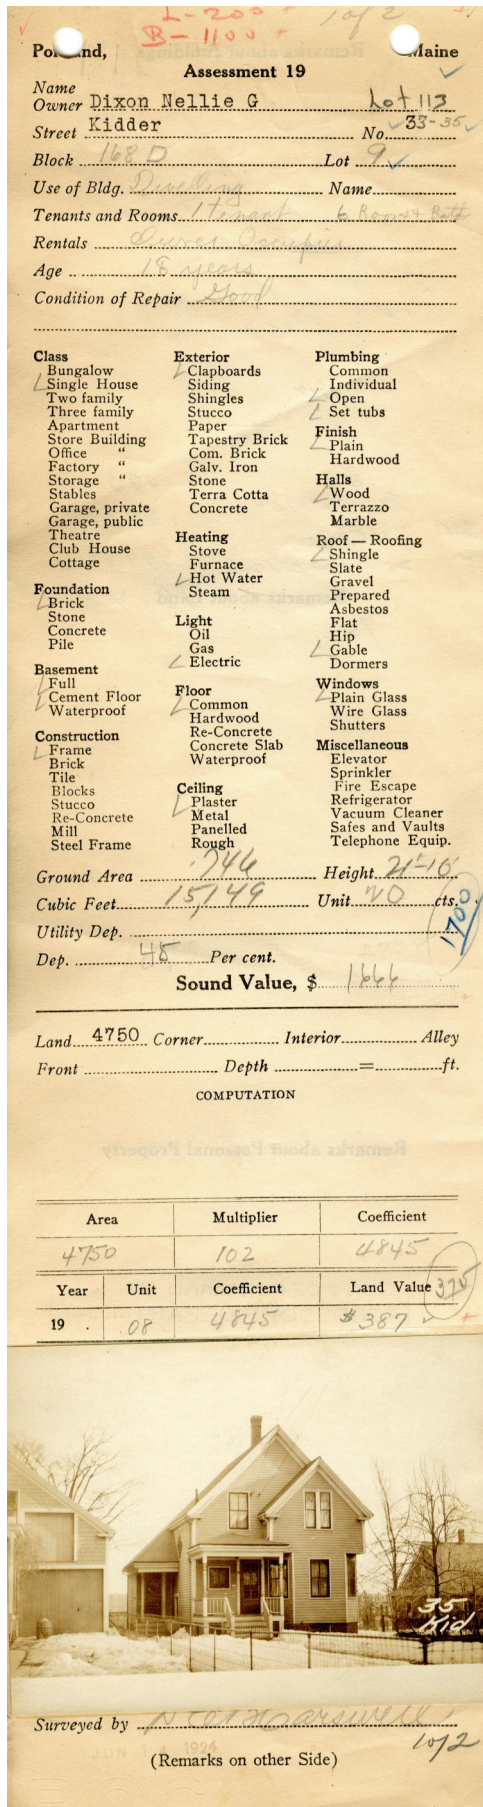 L-200 +
B-1100 +
1 of 2
Portland, Maine
Assessment 19
Name
Owner Dixon Nellie G Lot 113
Street Kidder No. 33-35
Block 168 D Lot 9
Use of Bldg. Dwelling Name
Tenants and Rooms 1 tenant 6 Rooms & Bath
Rentals Owner Occupies
Age 18 years
Condition of Repair Good
Class
Bungalow
Single House
Two family
Three family
Apartment
Store Building
Office "
Factory "
Storage "
Stables
Garage, private
Garage, public
Theatre
Club House
Cottage
Foundation
Brick
Stone
Concrete
Pile
Basement
Full
Cement Floor
Waterproof
Construction
Frame
Brick
Tile
Blocks
Stucco
Re-Concrete
Mill
Steel Frame
Exterior
Clapboards
Siding
Shingles
Stucco
Paper
Tapestry Brick
Com. Brick
Galv. Iron
Stone
Terra Cotta
Concrete
Heating
Stove
Furnace
Hot Water
Steam
Light
Oil
Gas
Electric
Floor
Common
Hardwood
Re-Concrete
Concrete Slab
Waterproof
Ceiling
Plaster
Metal
Panelled
Rough
Plumbing
Common
Individual
Open
Set tubs
Finish
Plain
Hardwood
Halls
Wood
Terrazzo
Marble
Roof — Roofing
Shingle
Slate
Gravel
Prepared
Asbestos
Flat
Hip
Gable
Dormers
Windows
Plain Glass
Wire Glass
Shutters
Miscellaneous
Elevator
Sprinkler
Fire Escape
Refrigerator
Vacuum Cleaner
Safes and Vaults
Telephone Equip.
Ground Area 746 Height 21'-10"
Cubic Feet 15,149 Unit 20 cts.
1700
Utility Dep.
Dep. 45 Per cent.
Sound Value, $ 1666
Land 4750 Corner Interior Alley
Front Depth = ft.
COMPUTATION
Area Multiplier Coefficient
4750 102 4845
Year Unit Coefficient Land Value 375
19 .08 4845 $387
35
Kid
Surveyed by
1924
1 of 2
(Remarks on other Side)